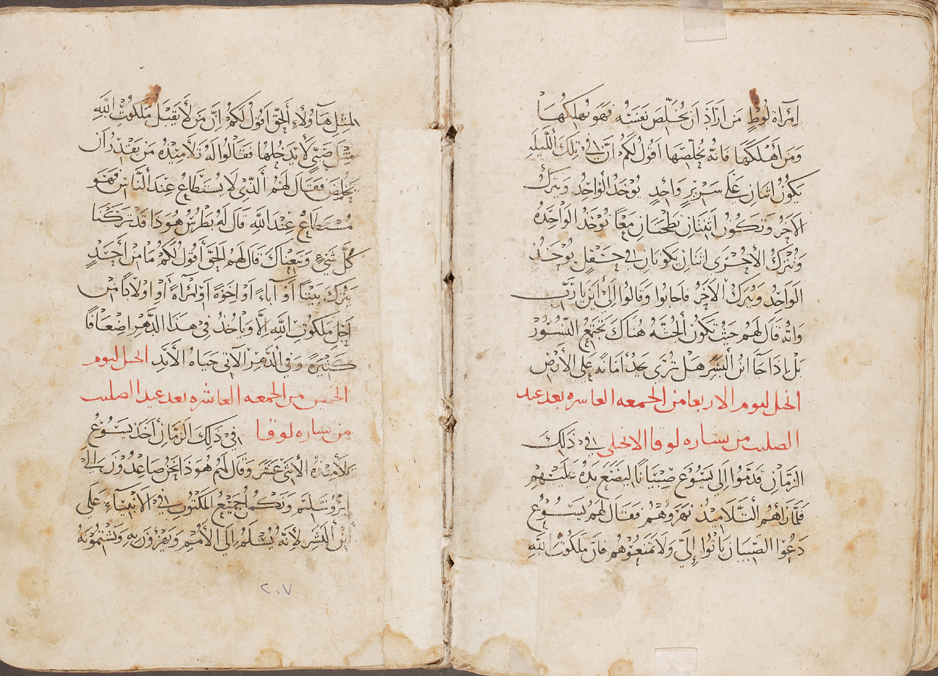 امرأة لوط من اراد ان يخلص نفسه فهو يهلكها
ومن اهلكها فانه يخلصها اقول لكم ان في تلك الليله
يكون اثنان على سرير واحد يوخد الواحد ويترك
الاخر وتكون اثنتان تطحنان معًا توخد الواحده
وتترك الاخرى اثنان يكونان في حقل يوخد
الواحد ويترك الاخر فاجابوا وقالوا الى اين يا رب
وانه قال لهم حيث تكون الجثه هناك تجتمع النسور
بل اذا جا ابن البشر هل ترى يجد امانه على الارض
انجيل ليوم الاربعا من الجمعه العاشره بعد عيد
الصليب من بشاره لوقا الانجيلي في ذلك
الزمان قدموا الى يسوع صبيانًا ليضع يده عليهم
فلما راهم التلاميذ نهروهم فقال لهم يسوع
دعوا الصبيان ياتوا إليّ ولا تمنعوهم فان ملكوت الله
لمثل هاؤلاء ألحق اقول لكم إن من لا يقبل ملكوت الله
مثل صبي لا يدخلها فقالوا له تلاميذه من يقدر أن
يخلص فقال لهم الذي لا يستطاع عند الناس فهو
مستطاع عند الله قال له بطرس هوذا قد تركنا
كل شيء وتبعناك قال لهم الحق أقول لكم ما من أحد
يترك بيتًا أو آباءً أو اخوةً أو امرأةً أو اولادًا من
اجل ملكوت الله الا وياخذ في هذا الدهر اضعافًا
كثيرةً وفي الدهر الاتي حياه الأبد انجيل ليوم
الخميس من الجمعه العاشره بعد عيد الصليب
من بشاره لوقا في ذلك الزمان أخذ يسوع
تلاميذه الاثنى عشر وقال لهم هوذا نحن صاعدون الى
ايروسليم وتكمل جميع المكتوب في الانبياء على
أبن البشر لأنه يسلم إلى الأمم ويهزون به ويشتمونه
٢٠٧